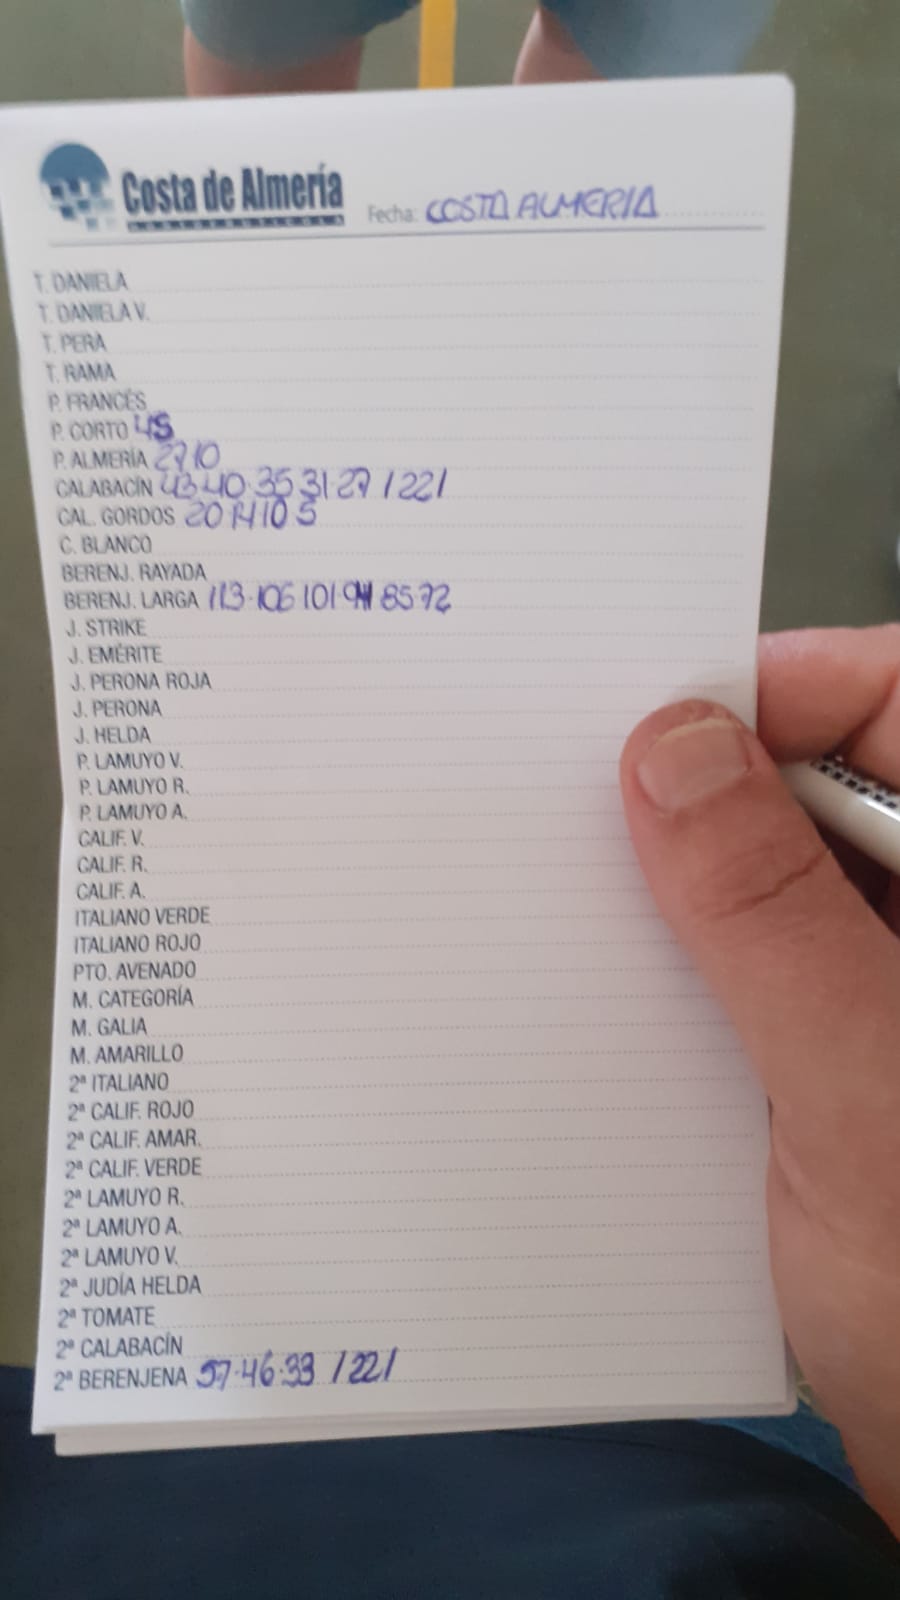 Costa de Almería
Fecha: COSTA ALMERIA
T. DANIELA
T. DANIELA V.
T. PERA
T. RAMA
P. FRANCÉS
P. CORTO 45
P. ALMERÍA 27 10
CALABACÍN 43 40 · 35 31 · 27 / 22 /
CAL. GORDOS 20 14 10 5
C. BLANCO
BERENJ. RAYADA
BERENJ. LARGA 113 · 106 101 · 94 85 72
J. STRIKE
J. EMÉRITE
J. PERONA ROJA
J. PERONA
J. HELDA
P. LAMUYO V.
P. LAMUYO R.
P. LAMUYO A.
CALIF. V.
CALIF. R.
CALIF. A.
ITALIANO VERDE
ITALIANO ROJO
PTO. AVENADO
M. CATEGORÍA
M. GALIA
M. AMARILLO
2ª ITALIANO
2ª CALIF. ROJO
2ª CALIF. AMAR.
2ª CALIF. VERDE
2ª LAMUYO R.
2ª LAMUYO A.
2ª LAMUYO V.
2ª JUDÍA HELDA
2ª TOMATE
2ª CALABACÍN
2ª BERENJENA 57 · 46 · 33 / 22 /